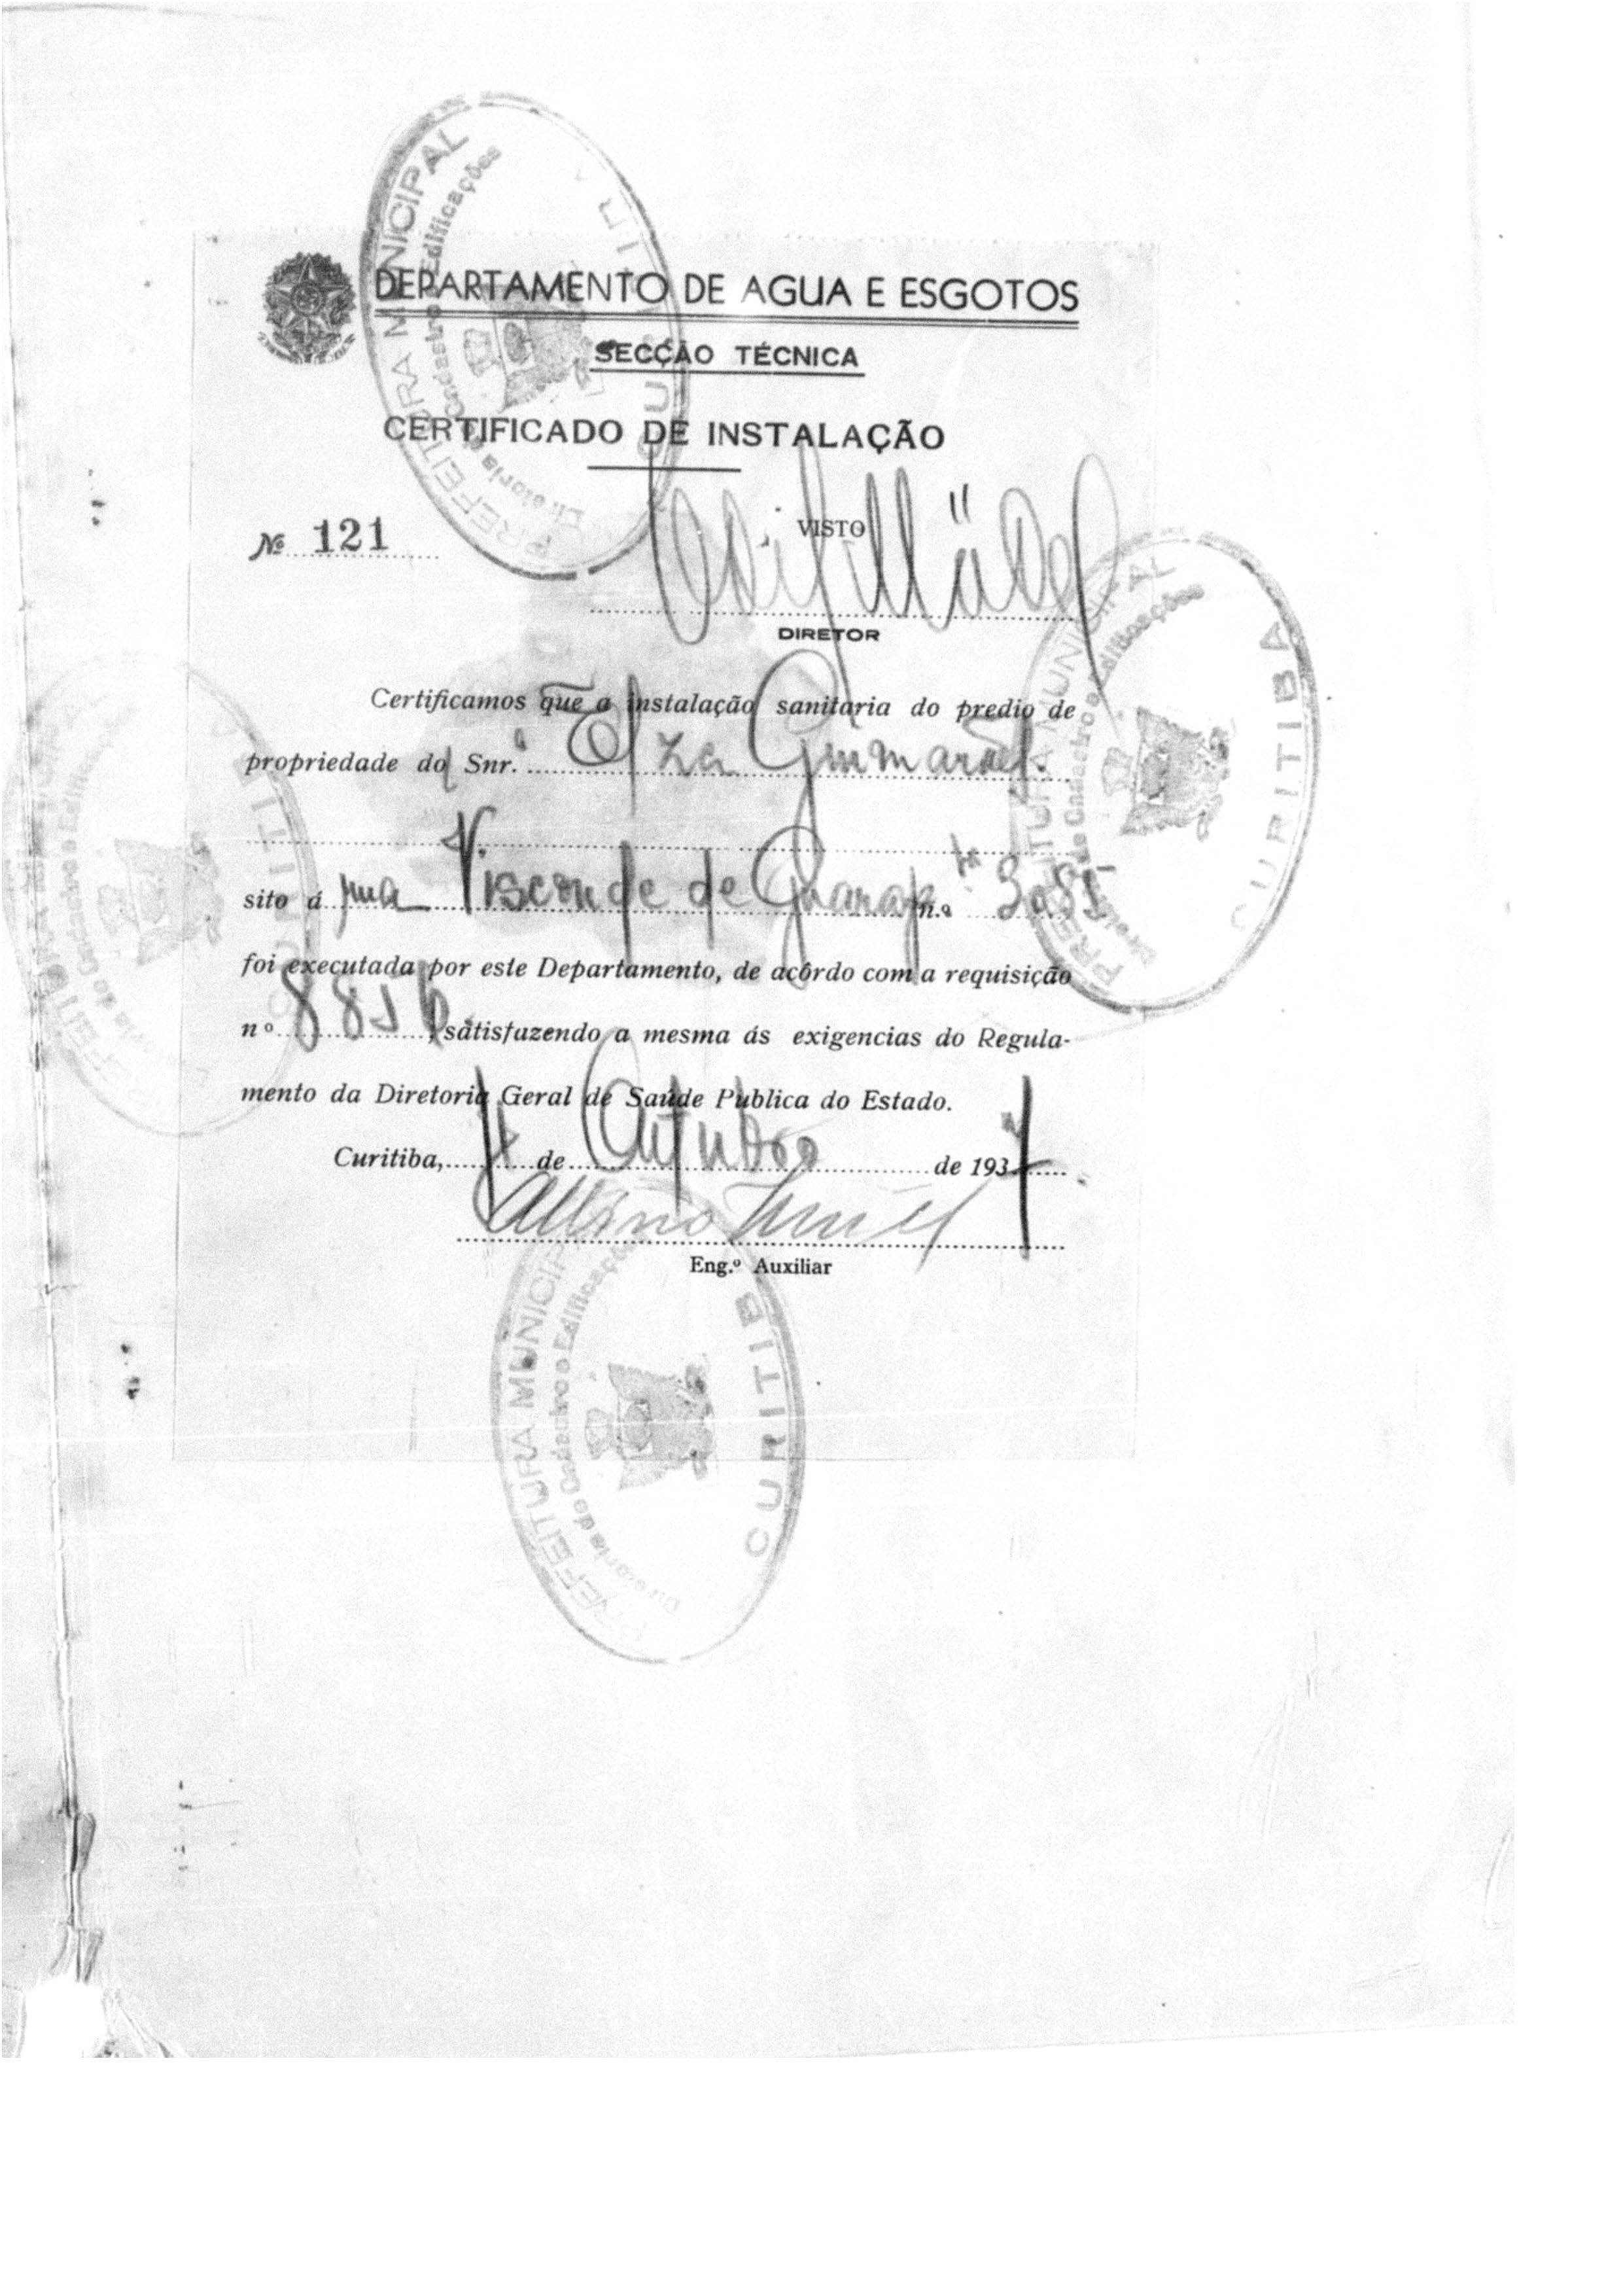 DEPARTAMENTO DE AGUA E ESGOTOS
SECÇÃO TÉCNICA
CERTIFICADO DE INSTALAÇÃO
Nº 121
VISTO
DIRETOR
Certificamos que a instalação sanitaria do predio de
propriedade do Snr.ª Elza Guimarães.
sito á rua Visconde de Guarap. n.º
foi executada por este Departamento, de acôrdo com a requisição
nº satisfazendo a mesma ás exigencias do Regula-
mento da Diretoria Geral de Saúde Publica do Estado.
Curitiba, de Outubro de 1937
Eng.º Auxiliar
PREFEITURA MUNICIPAL
Diretoria de Cadastro e Edificações
CURITIBA
PREFEITURA MUNICIPAL
Diretoria de Cadastro e Edificações
CURITIBA
PREFEITURA MUNICIPAL
Diretoria de Cadastro e Edificações
CURITIBA